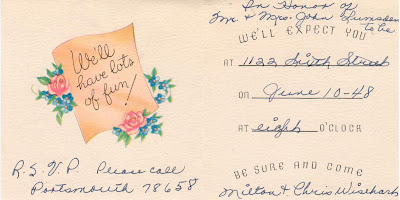 We'll
have lots
of fun!
R.S.V.P. Please call
Portsmouth 78658
In Honor of
Mr & Mrs. John Lumsden
to be
WE'LL EXPECT YOU
AT 1122 Street
ON June 10-48
AT eight O'CLOCK
BE SURE AND COME
Milton & Chris Wisehart